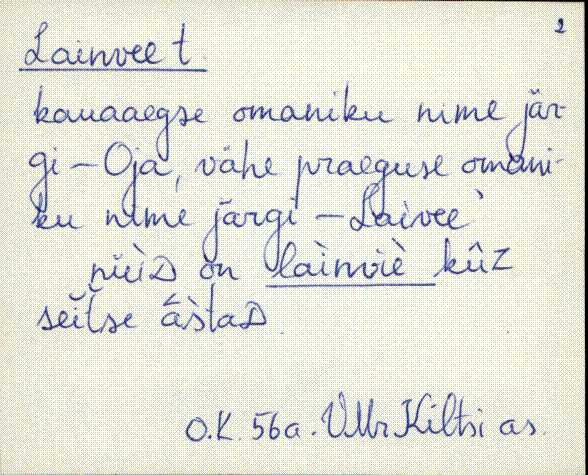 2
Lainvee t.
kauaaegse omaniku nime jär-
gi – Oja, vähe praeguse omani-
ku nime järgi – Laivee
on lainviè kûz
O.K. 56a. VMr Kiltsi as.